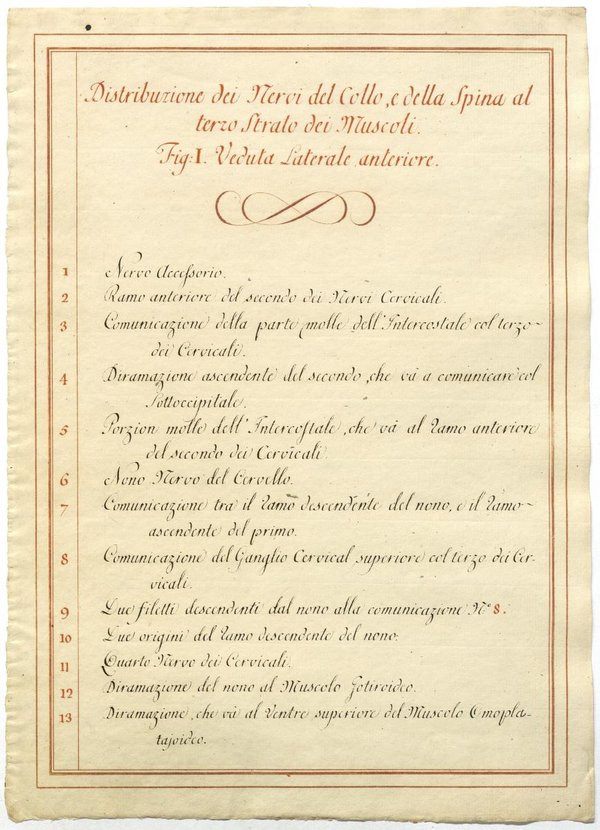 Distribuzione dei Nervi del Collo, e della Spina al
terzo Strato dei Muscoli.
Fig: I. Veduta Laterale anteriore.
1 Nervo Accessorio.
2 Ramo anteriore del secondo dei Nervi Cervicali.
3 Comunicazione della parte molle dell'Intercostale col terzo
dei Cervicali.
4 Diramazione ascendente del secondo, che và a comunicare col
Sottoccipitale.
5 Porzion molle dell'Intercostale, che và al ramo anteriore
del secondo dei Cervicali.
6 Nono Nervo del Cervello.
7 Comunicazione tra il ramo descendente del nono, e il ramo
ascendente del primo.
8 Comunicazione del Ganglio Cervical superiore col terzo dei Cer-
vicali.
9 Due filetti descendenti dal nono alla comunicazione N.º 8.
10 Due origini del ramo descendente del nono.
11 Quarto Nervo dei Cervicali.
12 Diramazione del nono al Muscolo Jotiroideo.
13 Diramazione, che và al Ventre superiore del Muscolo Omopla-
tajoideo.